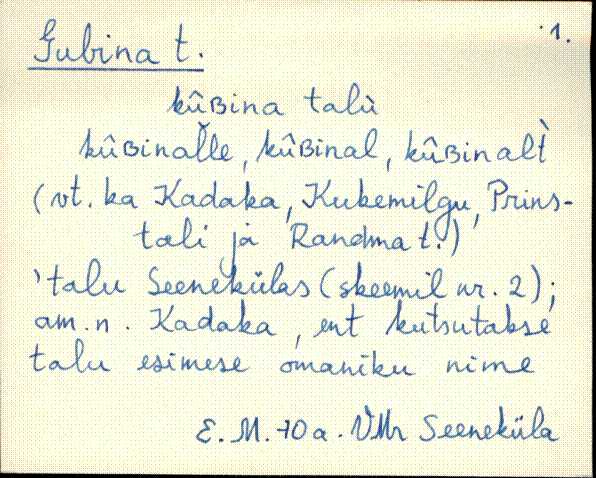 1.
Gubina t.
kûʙina talù
kûʙinal̆le, kûʙinal, kûʙinalt̀
(vt. ka Kadaka, Kukemilgu, Prins-
tali ja Randma t.)
'talu Seenekülas (skeemil nr. 2);
am. n. Kadaka, ent kutsutakse
talu esimese omaniku nime
E. M. 70 a. VMr Seeneküla